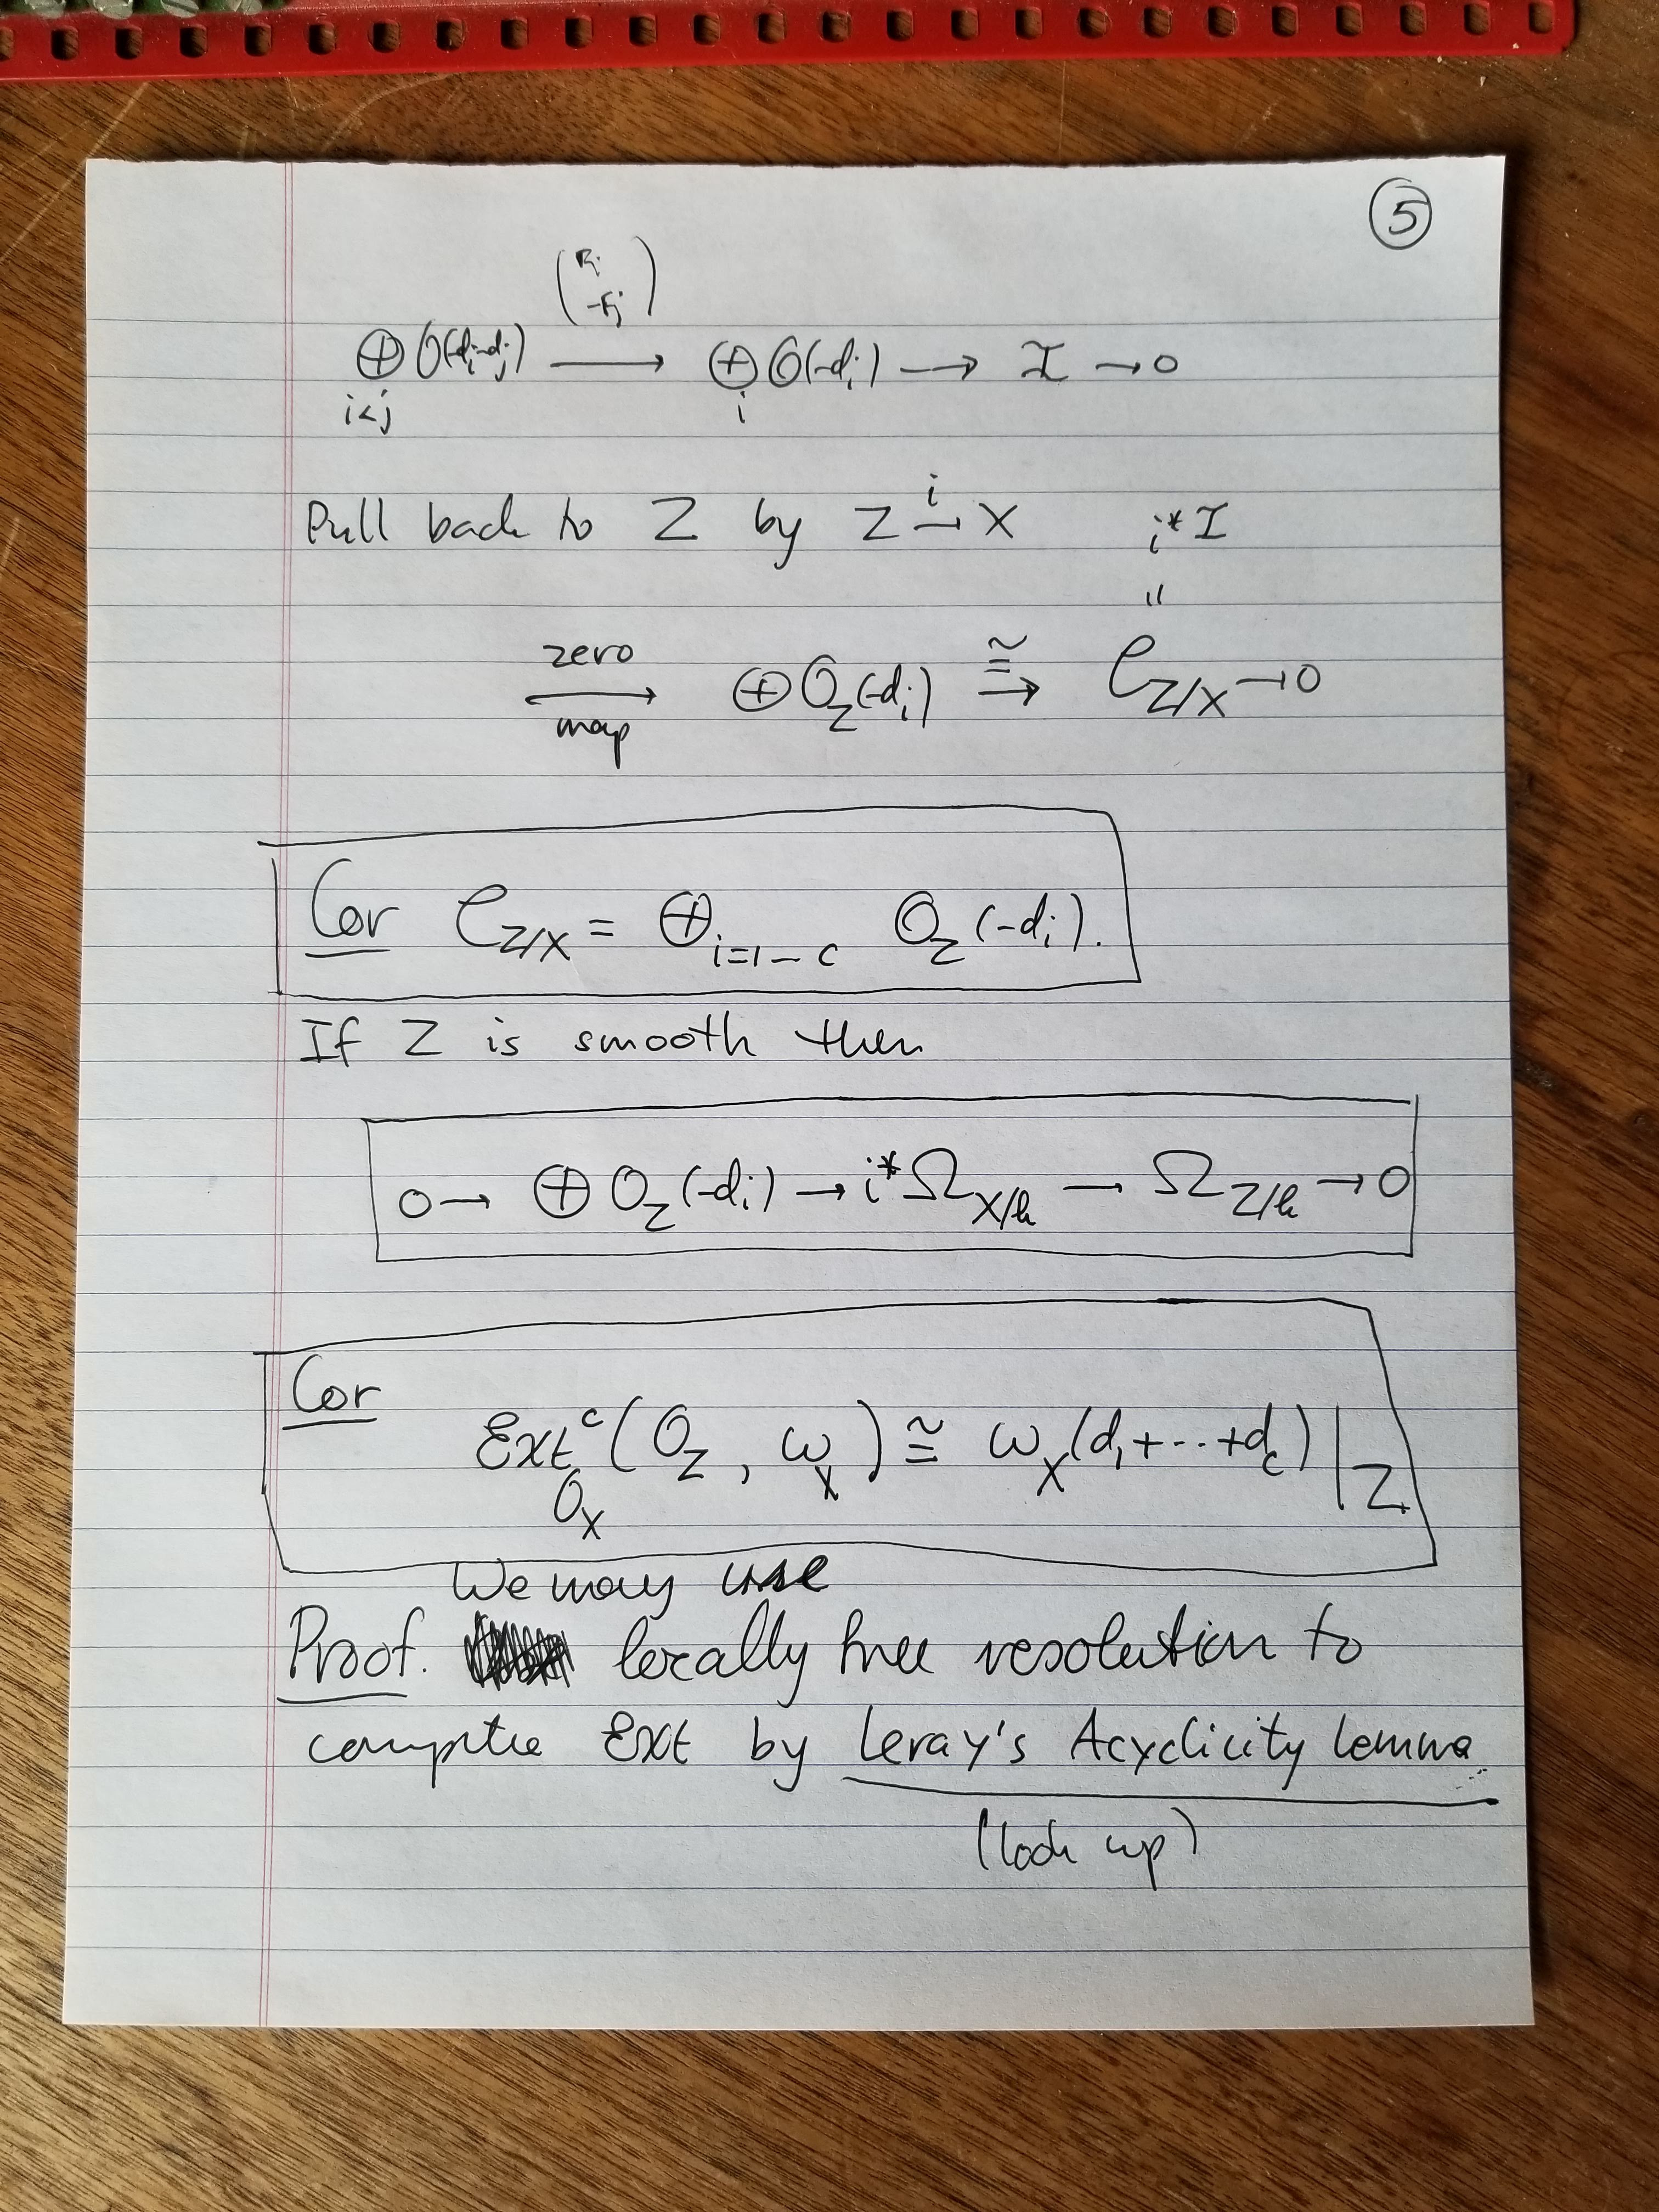 5
( Fi
-Fj )
⊕ O(-di-dj) ⟶ ⊕ O(-di) → I → 0
i<j i
Pull back to Z by Z →i X i*I
"
zero
⟶ ⊕ O_Z(-di) ≅→ C_{Z/X} → 0
map
Cor C_{Z/X} = ⊕_{i=1-c} O_Z(-di).
If Z is smooth then
0 → ⊕ O_Z(-di) → i*Ω_{X/k} → Ω_{Z/k} → 0
Cor
Ext^c_{O_X}(O_Z, ω_X) ≅ ω_X(d_1+...+d_c)|_Z
We may use
Proof. locally free resolution to
compute Ext by Leray's Acyclicity lemma
(look up)